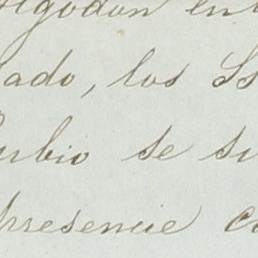 algodon en
ado, los Ss
ubio se si
presencie co